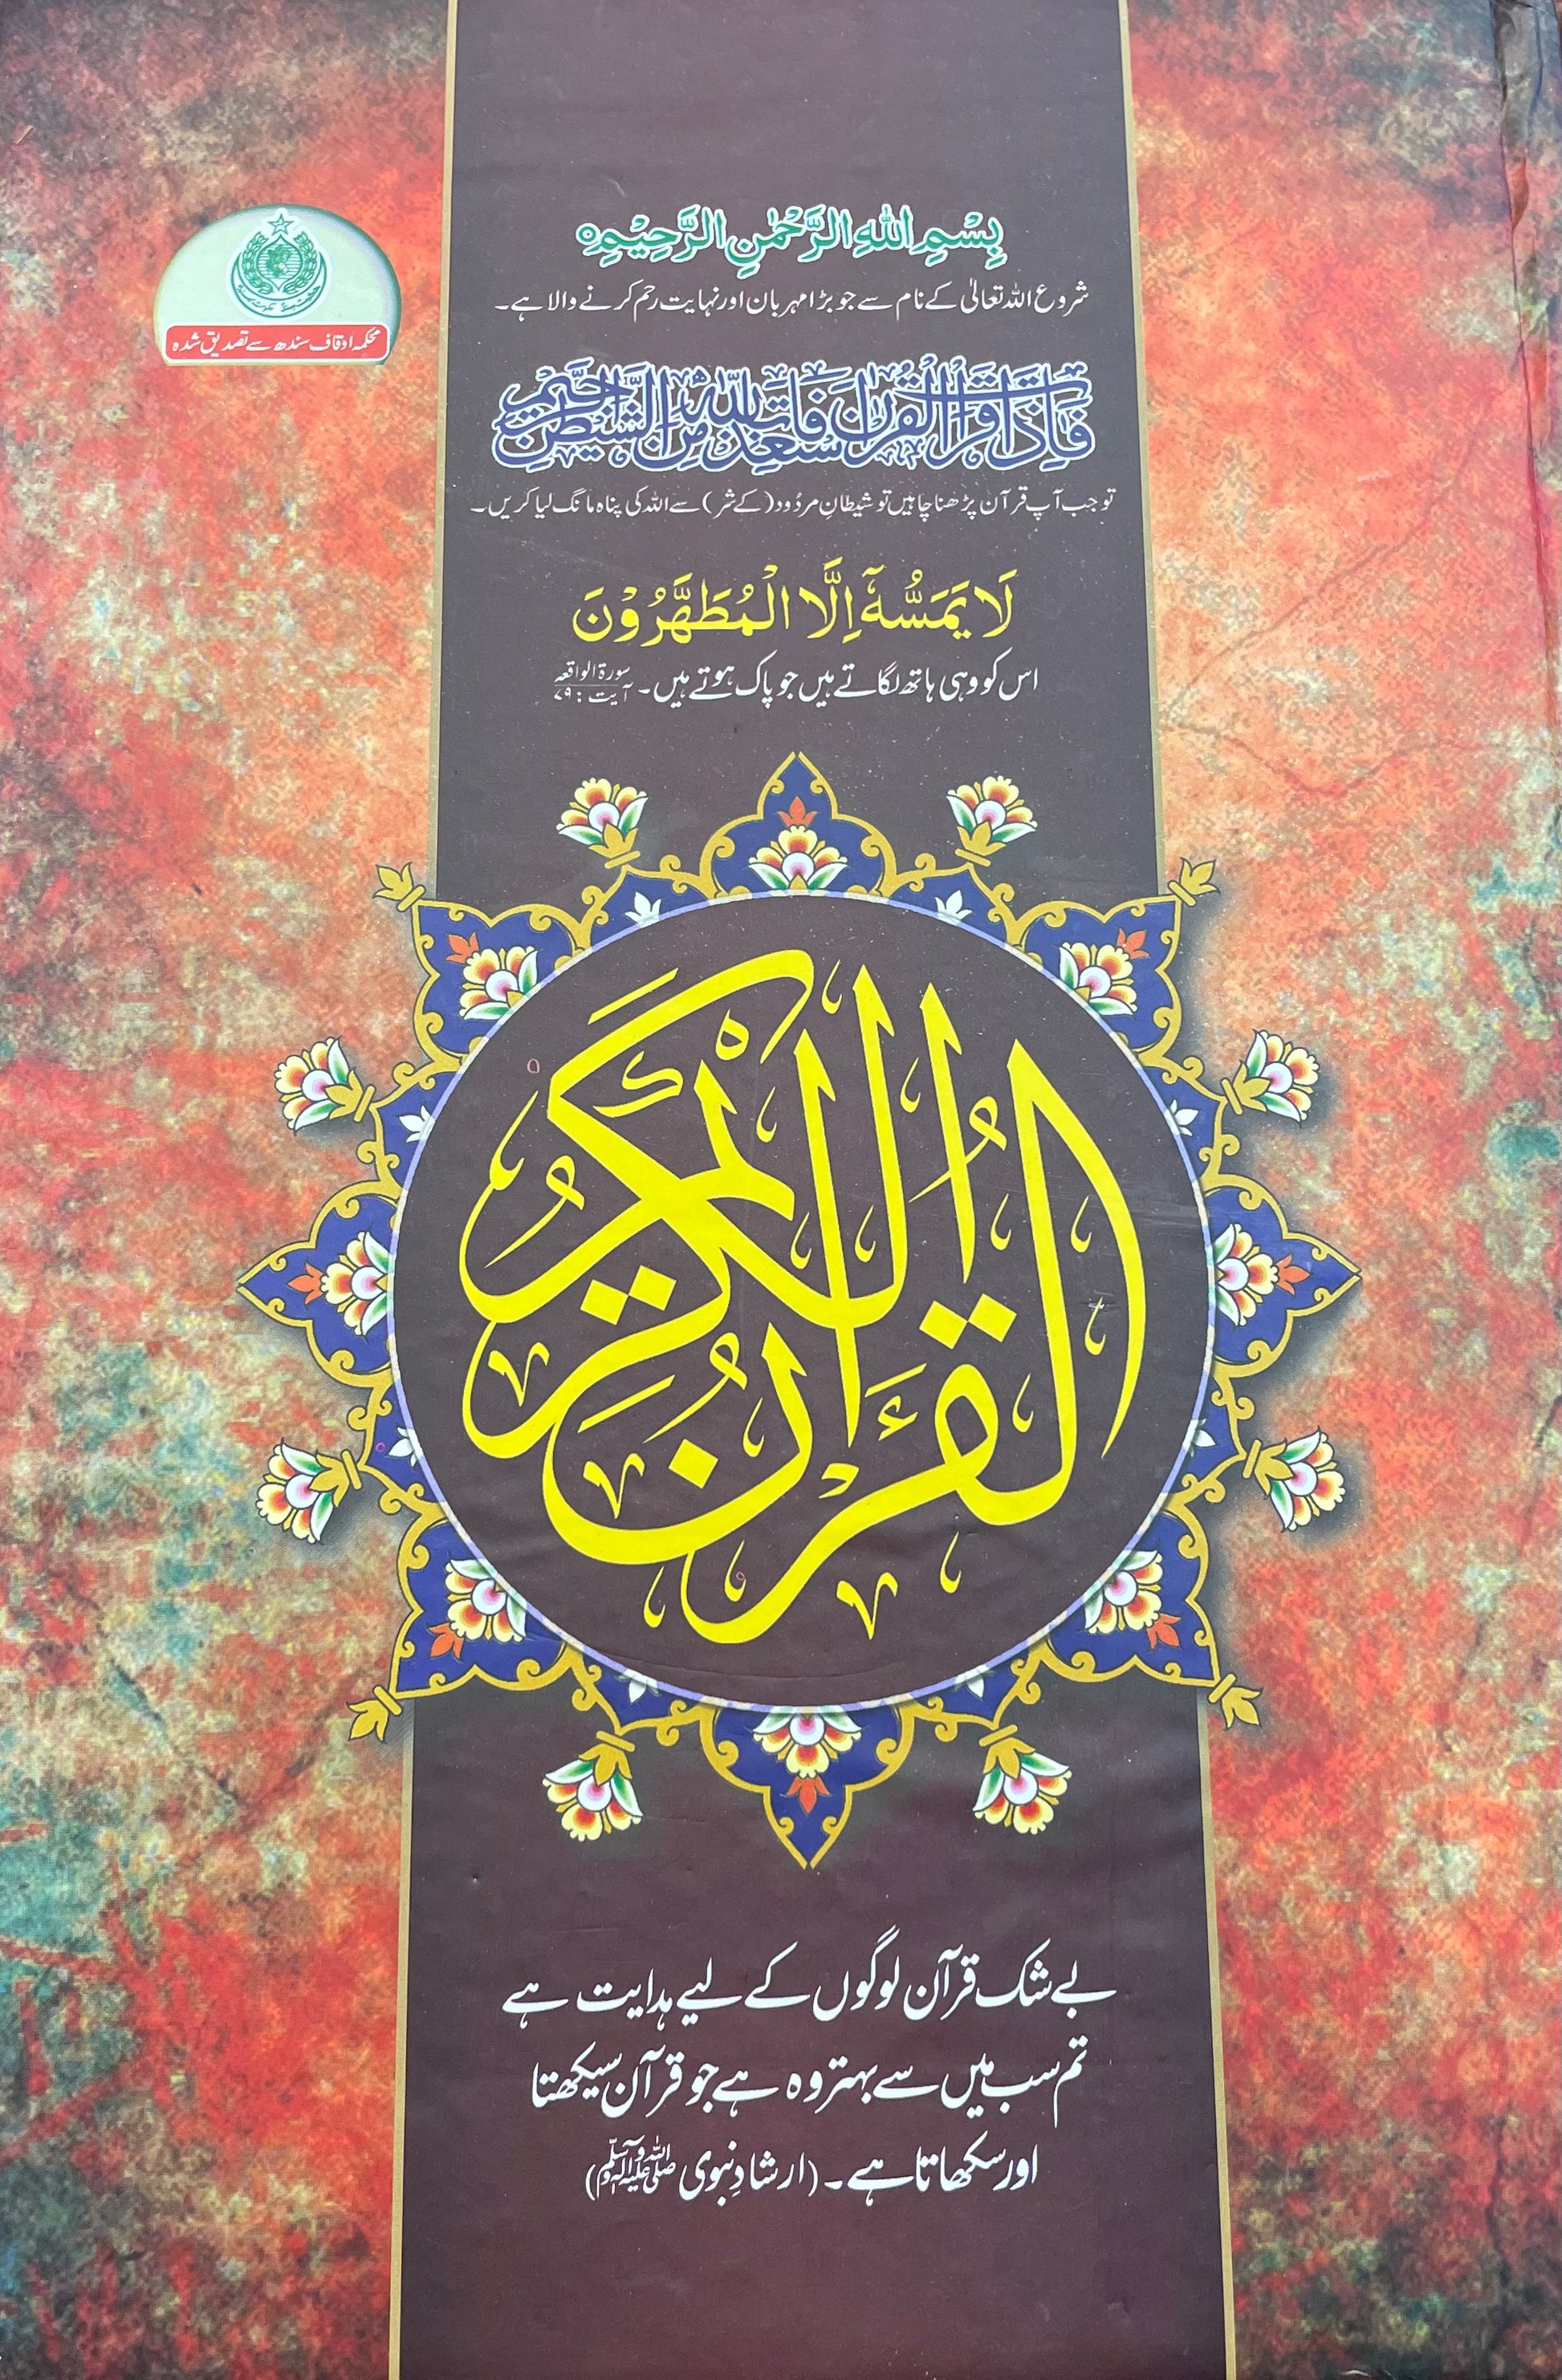 بِسْمِ اللهِ الرَّحْمٰنِ الرَّحِيْمِ
شروع اللہ تعالیٰ کے نام سے جو بڑا مہربان اور نہایت رحم کرنے والا ہے۔
محکمہ اوقاف سندھ سے تصدیق شدہ
فَاِذَا قَرَاْتَ الْقُرْاٰنَ فَاسْتَعِذْ بِاللّٰهِ مِنَ الشَّيْطٰنِ الرَّجِيْمِ
تو جب آپ قرآن پڑھنا چاہیں تو شیطانِ مردُود (کے شر) سے اللہ کی پناہ مانگ لیا کریں۔
لَا يَمَسُّهٗٓ اِلَّا الْمُطَهَّرُوْنَ
اس کو وہی ہاتھ لگاتے ہیں جو پاک ہوتے ہیں۔ سورۃ الواقعہ آیت: ۷۹
القُرْاٰنُ الكَرِيْمُ
بے شک قرآن لوگوں کے لیے ہدایت ہے
تم سب میں سے بہتر وہ ہے جو قرآن سیکھتا
اور سکھاتا ہے۔ (ارشادِ نبوی صلی اللہ علیہ وآلہ وسلم)